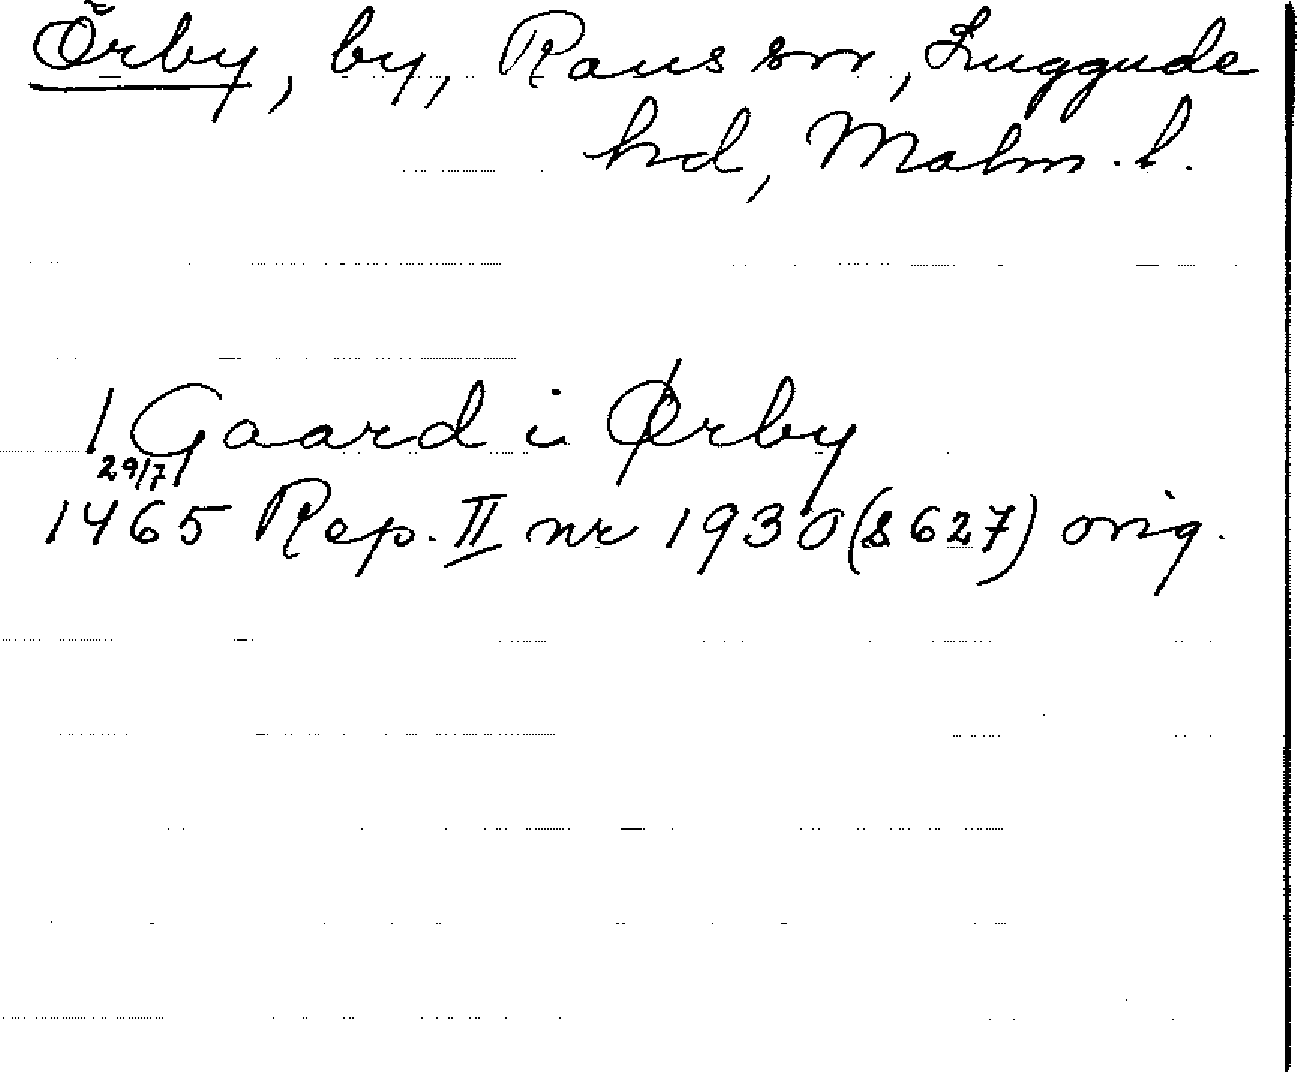 Örby, by, Raus sn, Luggude
hd, Malm. l.
1 Gaard i Ørby
29/7
1465 Rep. II nr 1930 (s 627) orig.